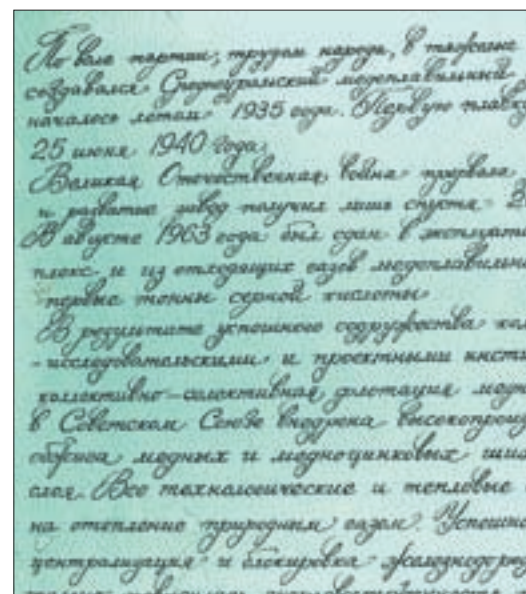 По воле партии, трудом народа, в тяжелые
создавался Среднеуральский медеплавильный
началось летом 1935 года. Первую плавку
25 июня 1940 года.
Великая Отечественная война прервала
и развитие завод получил лишь спустя 2
В августе 1963 года был сдан в эксплуата
плекс и из отходящих газов медеплавильн
первые тонны серной кислоты.
В результате успешного содружества кол
-исследовательскими и проектными инсти
коллективно-селективная флотация мед
в Советском Союзе внедрена высокопроиз
обжига медных и медноцинковых ших
слоя. Все технологические и тепловые
на отопление природным газом. Успешно
централизация и блокировка железнодоро